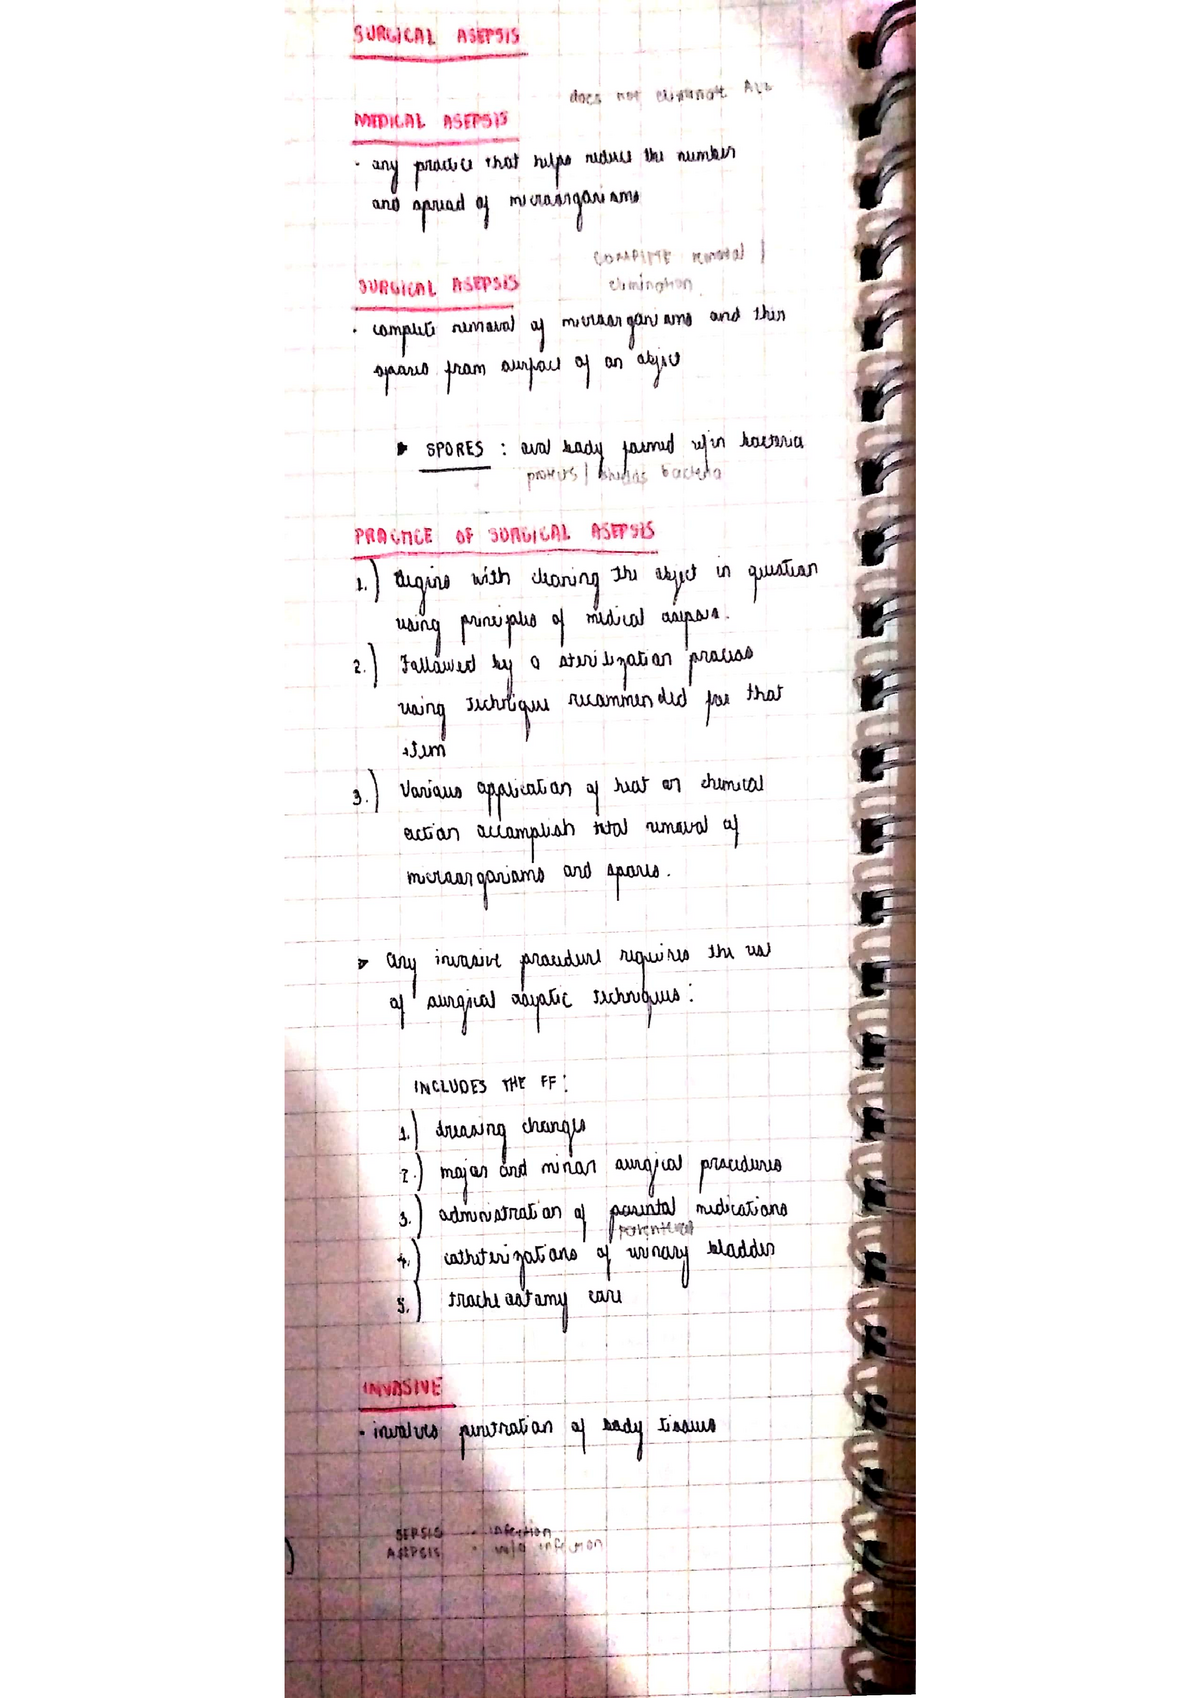 SURGICAL ASEPSIS
does not eliminate ALL
MEDICAL ASEPSIS
• any practice that helps reduce the number
and spread of microorganisms
COMPLETE removal /
elimination
SURGICAL ASEPSIS
• complete removal of microorganisms and their
spores from surface of an object
▶ SPORES : oval body formed w/in bacteria
protects / shields bacteria
PRACTICE OF SURGICAL ASEPSIS
1.) Begins with cleaning the object in question
using principles of medical asepsis.
2.) Followed by a sterilization process
using technique recommended for that
item
3.) Various application of heat or chemical
action accomplish total removal of
microorganisms and spores.
➢ any invasive procedure requires the use
of surgical asceptic techniques :
INCLUDES THE FF :
1.) dressing changes
2.) major and minor surgical procedures
3.) administration of parental medications
parenteral
4.) catheterizations of urinary bladder
5.) tracheostomy care
INVASIVE
• involves penetration of body tissues
SEPSIS - infection
ASEPSIS - w/o infection